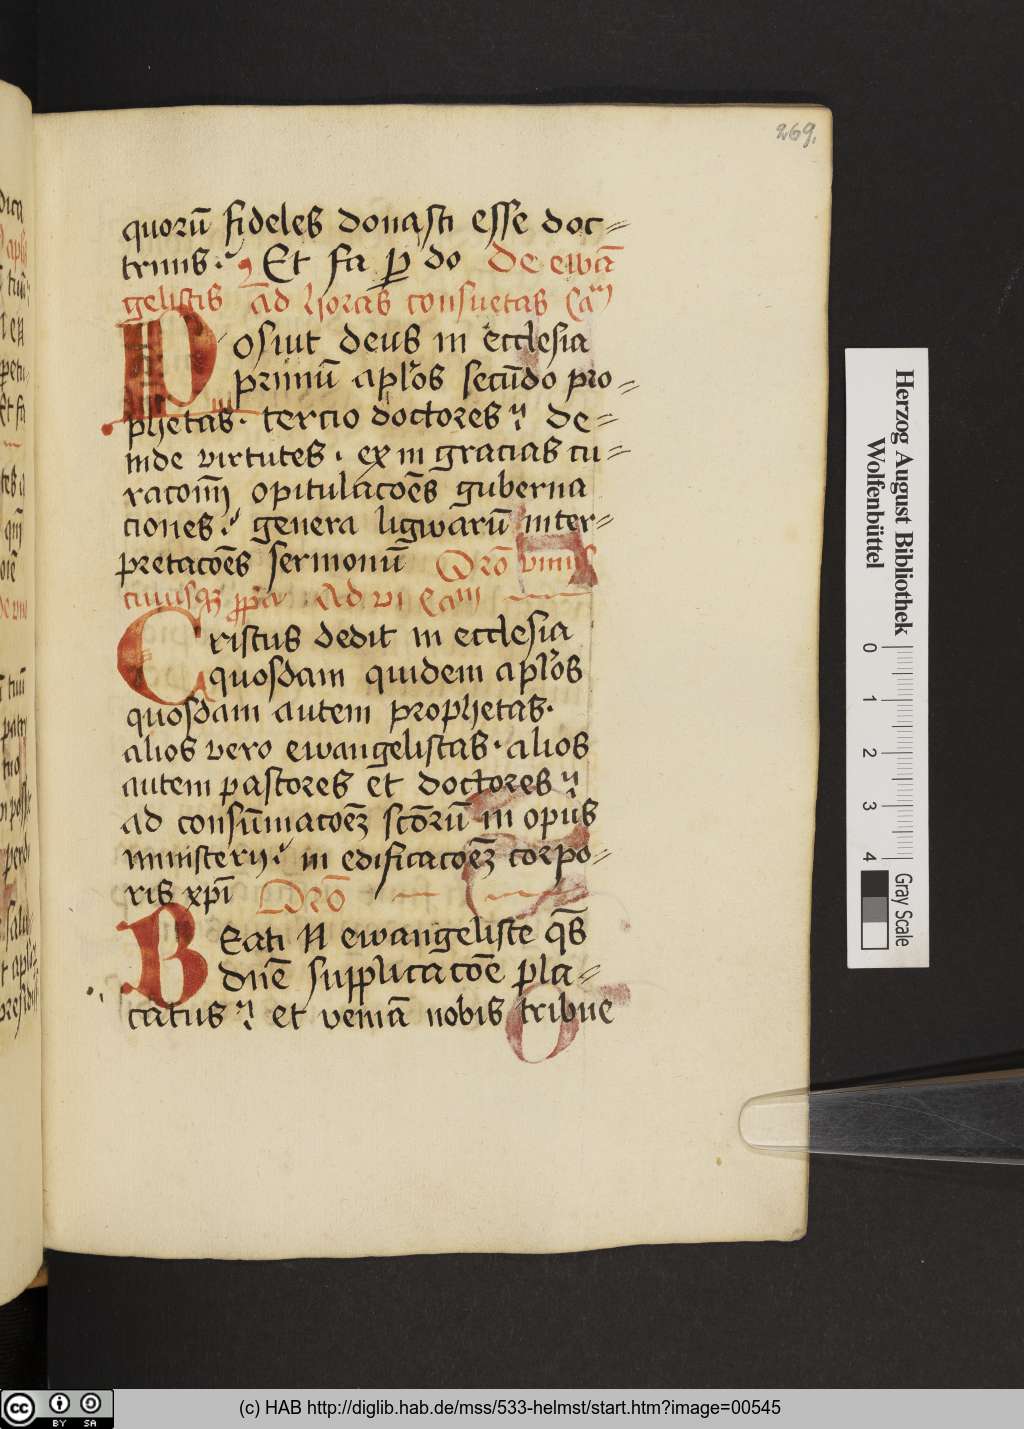 269.
quorū fideles donasti esse doc⸗
trinis. Et fa p̄ do De ewā
gelistis Ad horas consuetas Cam
Posuit deus in ecclesia
primū aplos secūdo pro⸗
phetas. tercio doctores de⸗
inde virtutes. exin gracias cu⸗
racoım̄ opitulacōes guberna
ciones. genera ligwarū inter⸗
pretacōes sermonū Orō vnius
cuiusqz ppa Ad vi Cam
Cristus dedit in ecclesia
quosdam quidem aplos
quosdam autem prophetas.
alios vero ewangelistas. alios
autem pastores et doctores
ad consūmacoēz scōrū in opus
ministerij. in edificacoēz corpo⸗
ris xpi Orō
Beati N ewangeliste qs̄
dnē supplicacōe pla⸗
catus et veniā nobis tribue
Herzog August Bibliothek
Wolfenbüttel
0 1 2 3 4
Gray Scale
cc BY SA
(c) HAB http://diglib.hab.de/mss/533-helmst/start.htm?image=00545